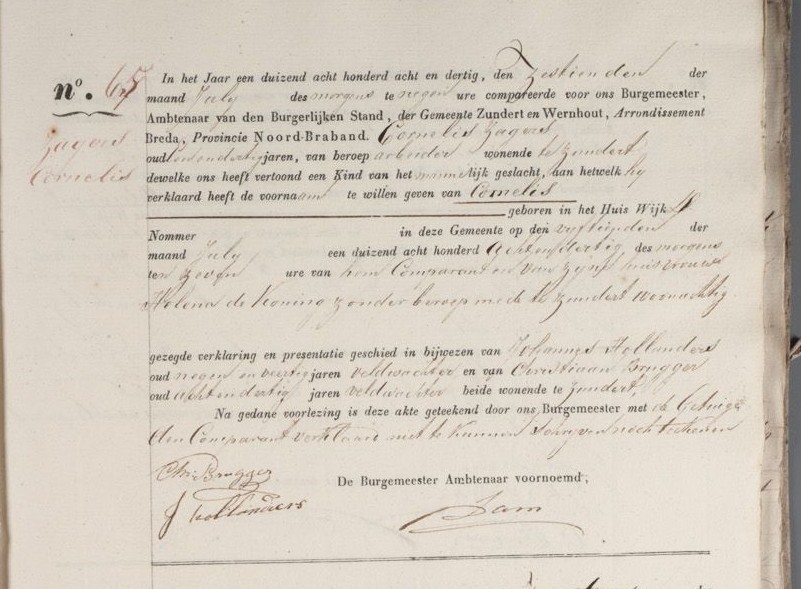 nº. 67
Zagers
Cornelis
In het Jaar een duizend acht honderd acht en dertig, den Zestienden der
maand July des morgens te negen ure compareerde voor ons Burgemeester,
Ambtenaar van den Burgerlijken Stand, der Gemeente Zundert en Wernhout, Arrondissement
Breda, Provincie Noord-Braband. Cornelis Zagers,
oud endertig jaren, van beroep arbeider wonende te Zundert
dewelke ons heeft vertoond een Kind van het mannelijk geslacht, aan hetwelk hy
verklaard heeft de voornaam te willen geven van Cornelis
geboren in het Huis Wijk
Nommer in deze Gemeente op den vyftienden der
maand July een duizend acht honderd achtendertig des morgens
ten Zeven ure van hem Comparant en van zyne huisvrouwe
Helena de Koning zonder beroep mede te Zundert woonachtig
gezegde verklaring en presentatie geschied in bijwezen van Johannes Hollanders
oud negen en veertig jaren veldwachter en van Christiaan Brugger
oud achtendertig jaren veldwachter beide wonende te Zundert,
Na gedane voorlezing is deze akte geteekend door ons Burgemeester met de Getuigen
den Comparant verklaard niet te kunnen schryven noch teekenen
Chr: Brugger
J Hollanders
De Burgemeester Ambtenaar voornoemd,